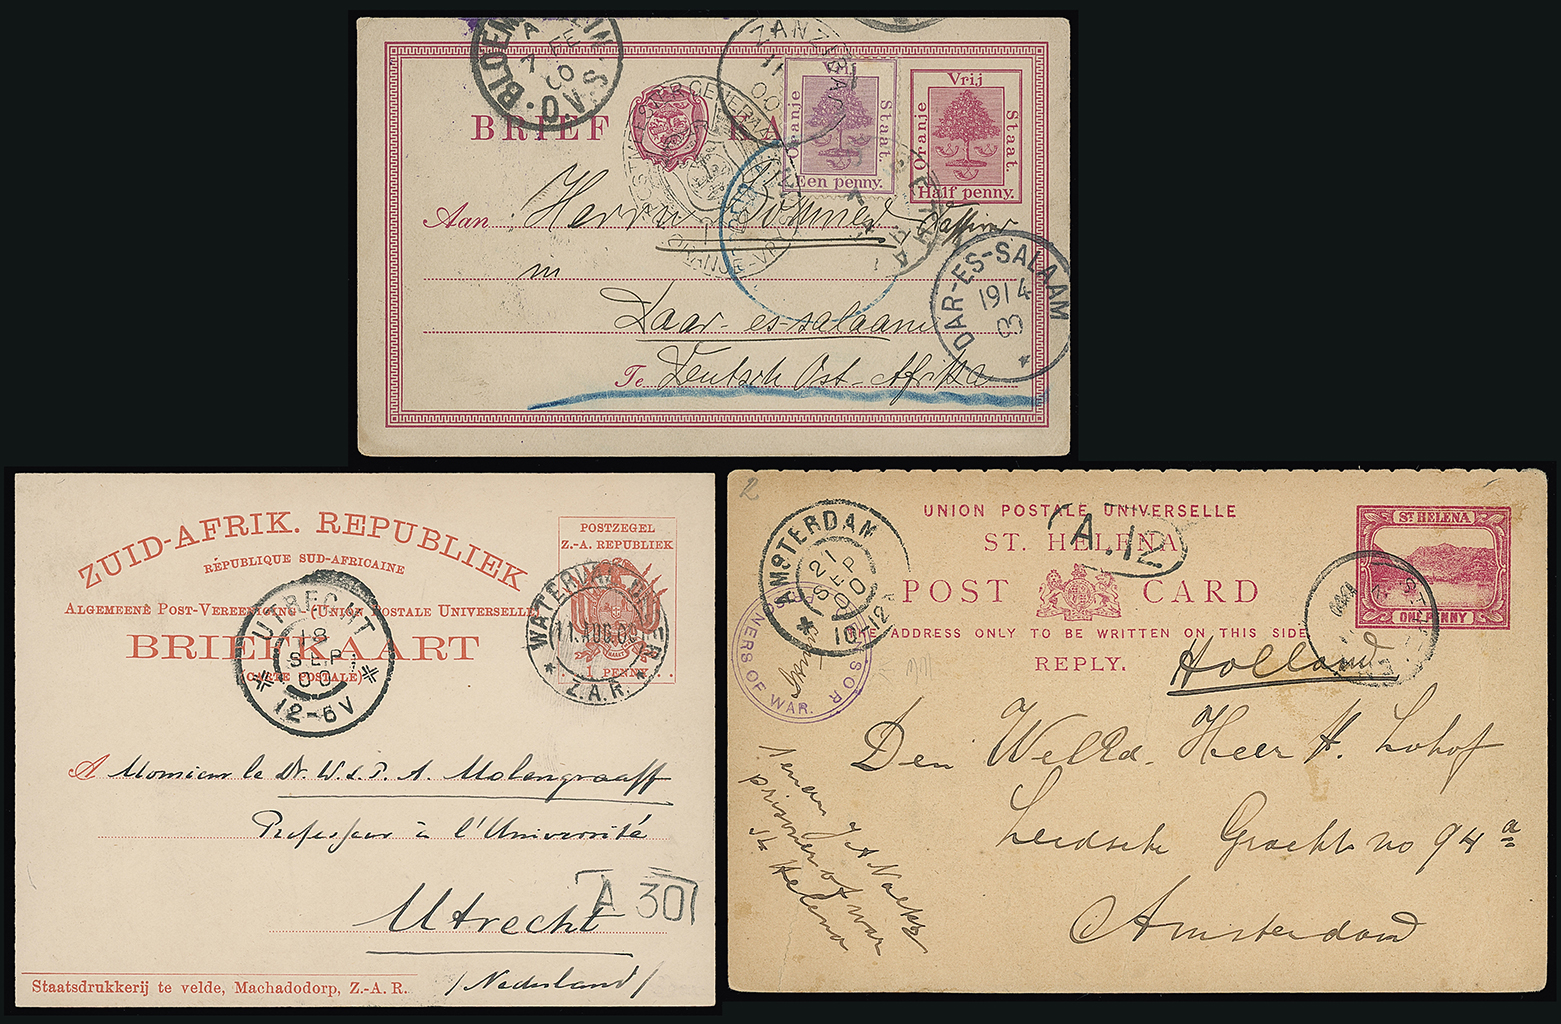 BLOEMFONTEIN O.V.S.
A
7 FE
00
ZANZIBAR
11
00
BRIEF KAART
Oranje Vrij Staat.
Een penny.
Oranje Vrij Staat.
Half penny.
POSTMEESTER GENERAAL
ORANJE-VRIJ
Aan Herrn
in
Daar-es-salaam
Te Deutsch Ost-Afrika
DAR-ES-SALAAM
19 1 4
ZUID-AFRIK. REPUBLIEK
RÉPUBLIQUE SUD-AFRICAINE
ALGEMEENE POST-VEREENIGING (UNION POSTALE UNIVERSELLE)
BRIEFKAART
(CARTE POSTALE)
POSTZEGEL
Z.-A. REPUBLIEK
1 PENNY
UTRECHT
18
SEP
00
12-6V
11.AUG.00
Z.A.R.
A Monsieur le Dr. W. L. P. A. Molengraaff
Professeur à l'Université
A 30
Utrecht
(Nederland)
Staatsdrukkerij te velde, Machadodorp, Z.-A. R.
2
UNION POSTALE UNIVERSELLE
ST. HELENA
POST CARD
THE ADDRESS ONLY TO BE WRITTEN ON THIS SIDE
REPLY.
A.12
ST HELENA
ONE PENNY
AMSTERDAM
21
SEP
00
10-12
PRISONERS OF WAR.
Holland
Den WelEd. Heer H. Lohof
Leidsche Gracht no 94 a
Amsterdam
prisoner of war
St Helena